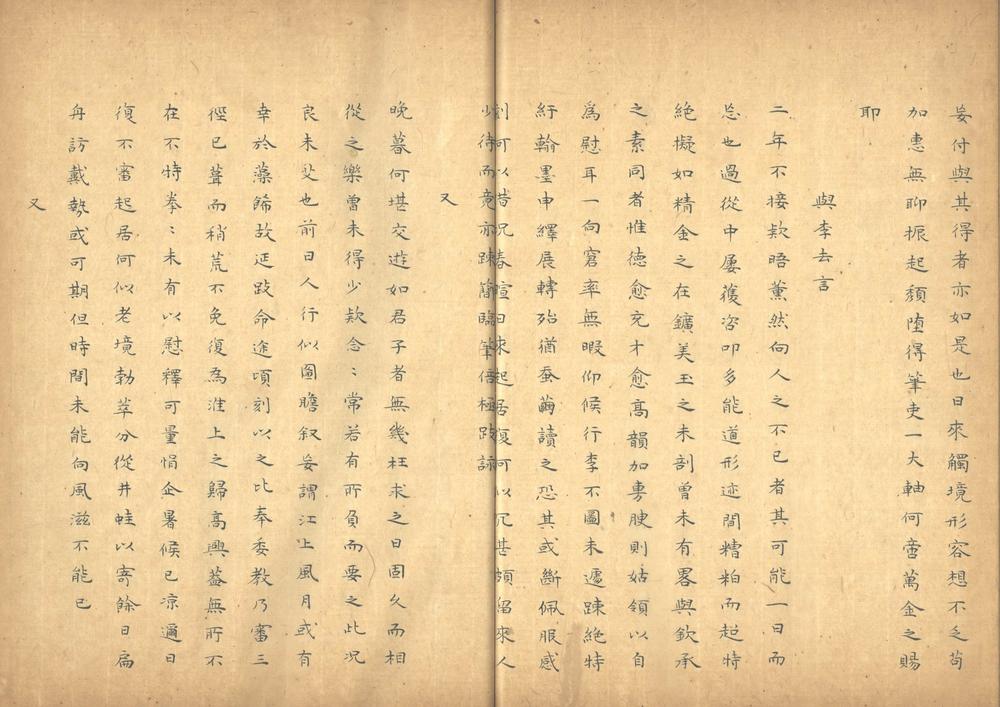 妄付與其得者亦如是也日來觸境形容想不乏苟
加惠無聊振起頹墮得筆吏一大軸何啻萬金之賜
耶
與李去言
二年不接欵晤薰然向人之不已者其可能一日而
忘也過從中屢獲咨叩多能道形迹間糟粕而超特
絶擬如精金之在鑛美玉之未剖曾未有畧與欽承
之素同者惟德愈充才愈高韻加勇腴則姑領以自
為慰耳一向窘率無暇仰候行李不圖未遽踈絶特
紆翰墨申繹展轉殆猶蚕繭讀之恐其或斷佩服感
刻何以堪況春暄日來起居復何以冗甚頻留來人
少待而竟亦踈簡臨筆倍極跂詠
又
晚暮何堪交遊如君子者無幾枉求之日固久而相
從之樂曾未得少欵念〻常若有所負而要之此况
良未艾也前日人行似圖瞻叙妄謂江上風月或有
幸於藻飾故延跂命途頃刻以之比奉委教乃審三
徑已葺而稍荒不免復為淮上之歸高興葢無所不
在不特拳〻未有以慰釋可量悁企暑候已凉邇日
復不審起居何似老境勃萃分從井蛙以寄餘日扁
舟訪戴勢或可期但時間未能向風滋不能已
又